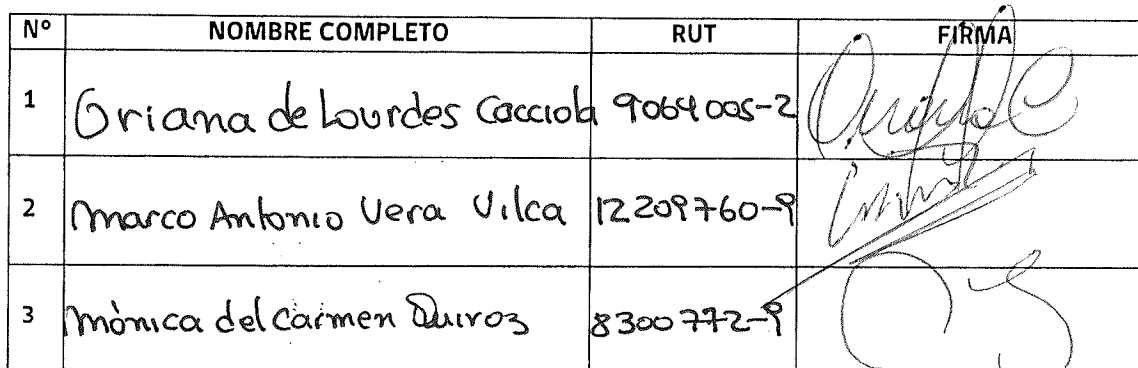 Nº NOMBRE COMPLETO RUT FIRMA
1 Oriana de Lourdes Cacciola 9064005-2
2 Marco Antonio Vera Vilca 12209760-9
3 Mónica del Carmen Quiroz 8300772-9